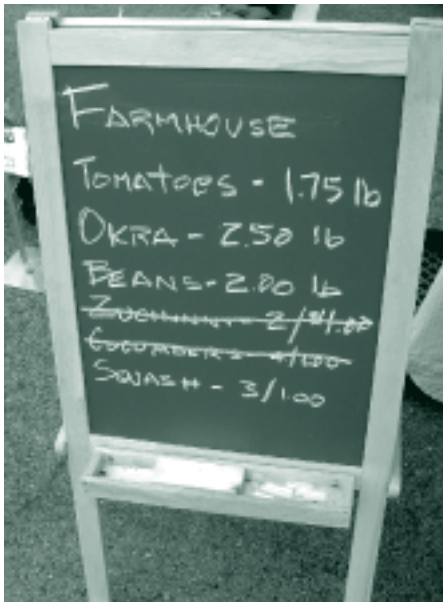 FARMHOUSE
TOMATOES - 1.75 lb
OKRA - 2.50 lb
BEANS - 2.00 lb
2/$1.00
CUCUMBERS - 4/1.00
SQUASH - 3/1.00